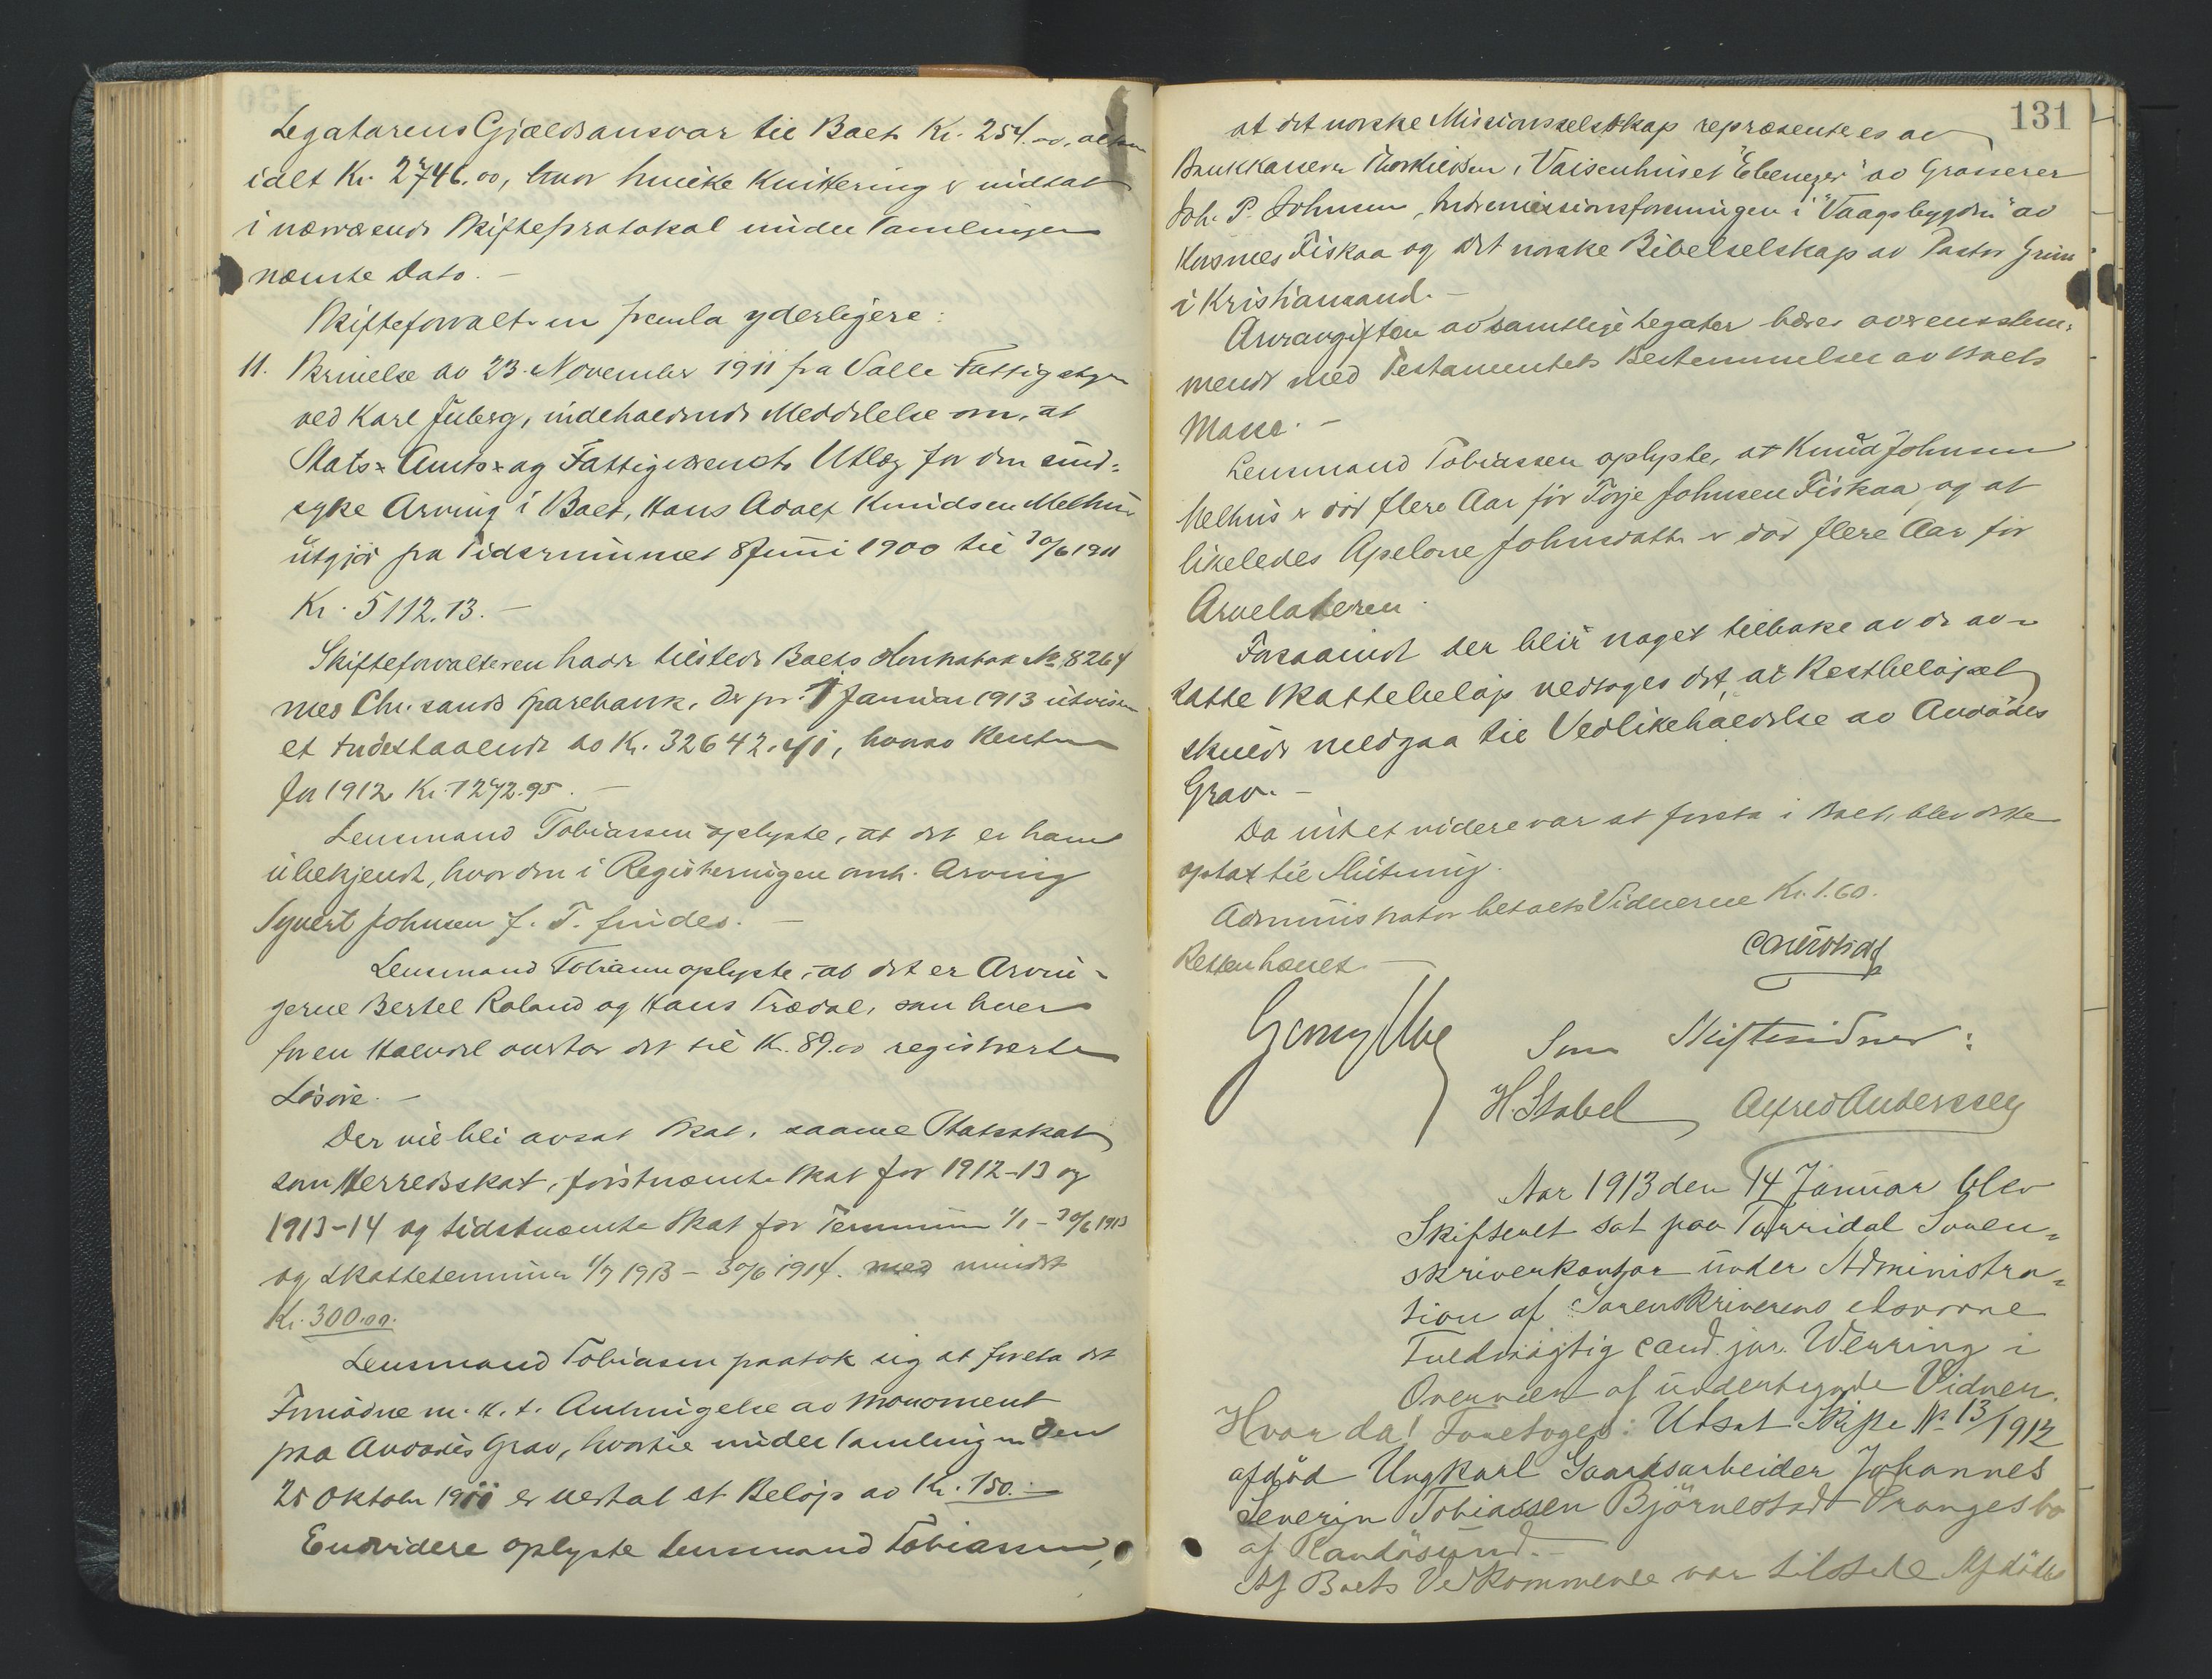 Legatarens Gjældsansvar til Boet Kr. 254.00, altsaa
ialt Kr. 2746.00, hvor hvilke Kvittering er indtat
i nærværende Skifteprotokol under Samlingen
nævnte Dato. –
Skifteforvalteren fremla yderligere:
11. Skrivelse av 23. November 1911 fra Valle Fattigstyre
ved Karl Juberg, indeholdende Meddelelse om, at
Stats- Amts- og Fattigvæsenets Utlæg for den sind-
syke Arving i Boet, Hans Adolf Knudsen Melhus
utgjør fra Tidsrummet 8 Juni 1900 til 30/6 1911
Kr. 5112.13. –
Skifteforvalteren hadde tilstede Boets Kontrabok No 8264
med Chr.sands Sparebank, der pr. 1 Januar 1913 utviser
et Indestaaende av Kr. 32642.41, hvorav Renten
for 1912 Kr. 1272.95. –
Lensmand Tobiassen oplyste, at det er ham
ubekjendt, hvor den i Registreringen omh. Arving
Syvert Johnsen f. T. findes. –
Lensmand Tobiassen oplyste, at det er Arvin-
gerne Bertel Roland og Hans Trædal, som hver
for en Halvdel overtar det til Kr. 89.00 registrerte
Løsøre. –
Der vil bli avsat Skat, saavel Statsskat
som Herredsskat, førstnævnte Skat for 1912-13 og
1913-14 og sidstnævnte Skat for Terminen 1/1 – 30/6 1913
og Skatteterminen 1/7 1913 – 30/6 1914. med mindst
Kr. 300.00.
Lensmand Tobiassen paatok sig at foreta det
Fornødne m. H. t. Anbringelse av Monoment
paa Avdødes Grav, hvortil under Samlingen den
25 Oktober 1911 er vedtat et Beløp av Kr. 150.-
Endvidere oplyste Lensmand Tobiassen,
131
at det norske Missionsselskap repræsenteres av
Bankkasserer Thorkildsen, Vaisenhuset "Ebenezer" av Grosserer
Joh. P. Johnsen, Indremissionsforeningen i "Vaagsbygden" av
Kosmes Fiskaa og det norske Bibelselskap av Pastor Grim
i Kristiansand. –
Arveavgiften av samtlige Legater bæres overensstem-
mende med Testamentets Bestemmelser av Boets
Masse. –
Lensmand Tobiassen oplyste, at Knud Johnsen
Melhus er død flere Aar før Torje Johnsen Fiskaa og at
likeledes Apelone Johnsdatter er død flere Aar før
Arveladeren.
Forsaavidt der blir noget tilbake av de av-
satte Skattebeløp vedtoges det, at Restbeløpet
skulde medgaa til Vedlikeholdelse av Avdødes
Grav. –
Da intet videre var at foreta i Boet, blev dette
optat til Slutning.
Administrator betalte Vidnerne Kr. 1.60.
Retten hævet. –
Som Skiftevidner:
H. Stabel Alfred Anderssen
Aar 1913 den 14 Januar blev
Skifteret sat paa Torridal Soren-
skriverkontor under Administra-
tion af Sorenskriverens edsvorne
Fuldmægtig cand. jur. Werring i
Overvær af undertegnede Vidner.
Hvor da! Foretoges: Utsat Skifte No 13/1912
afdød Ungkarl Gaardsarbeider Johannes
Severin Tobiassen Björnestad Prangesbo
af Randøsund. –
Af Boets Vedkommende var tilstede Afdödes